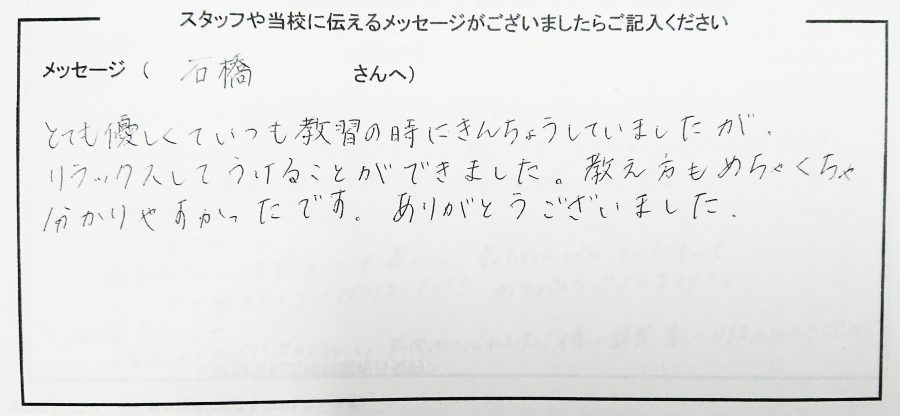 スタッフや当校に伝えるメッセージがございましたらご記入ください
メッセージ（ 石橋 さんへ）
とても優しくていつも教習の時にきんちょうしていましたが、
リラックスしてうけることができました。教え方もめちゃくちゃ
分かりやすかったです。ありがとうございました。